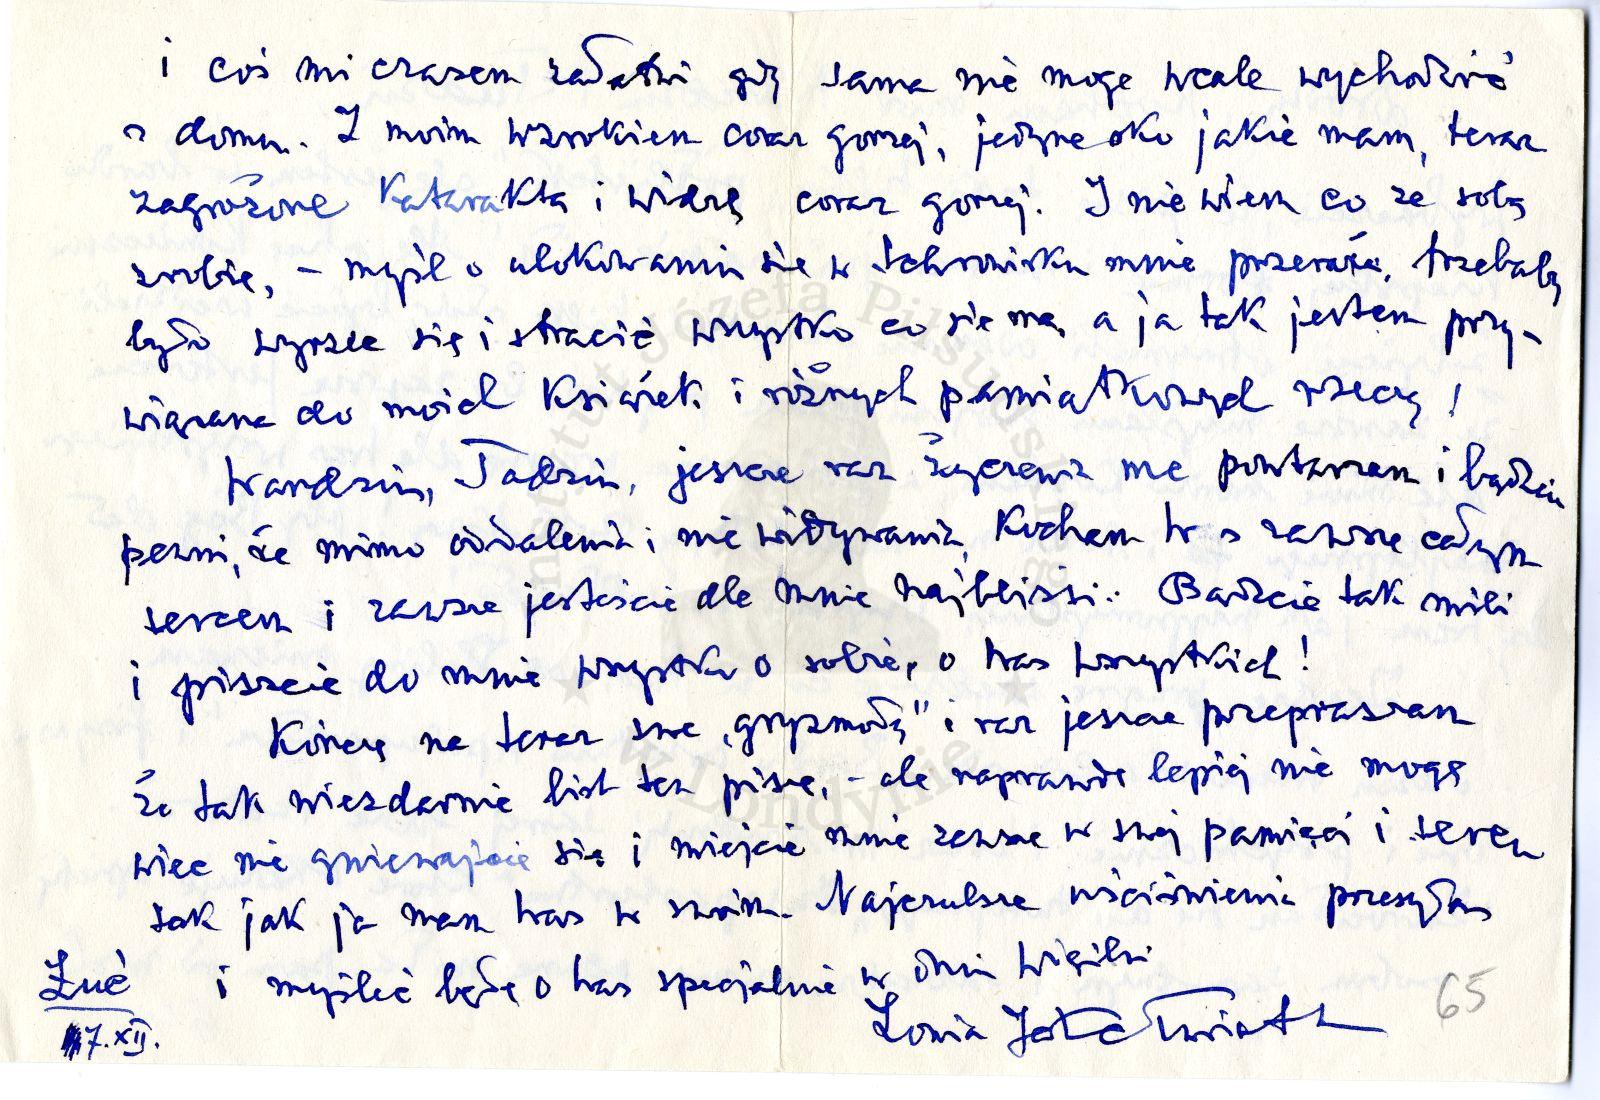 i coś mi czasem załatwi gdy sama nie mogę wcale wychodzić
z domu. Z moim wzrokiem coraz gorzej, jedyne oko jakie mam, teraz
zagrożone kataraktą i widzę coraz gorzej. I nie wiem co ze sobą
zrobię, – myśl o ulokowaniu się w schronisku mnie przeraża, trzebaby
było wyrzec się i stracić wszystko co się ma, a ja tak jestem przy-
wiązana do moich książek i różnych pamiątkowych rzeczy!
Wandziu, Tadziu, jeszcze raz życzenia me powtarzam i bądźcie
pewni, że mimo oddalenia i nie widywania, kocham Was zawsze całym
sercem i zawsze jesteście dla mnie najbliżsi. Bądźcie tak mili
i piszcie do mnie wszystko o sobie, o Was wszystkich!
Kończę na teraz swe „gryzmoły” i raz jeszcze przepraszam
że tak niezdarnie list ten piszę, – ale naprawdę lepiej nie mogę
więc nie gniewajcie się i miejcie mnie zawsze w swej pamięci i sercu
tak jak ja mam Was w swoim. Najczulsze uściśnienia przesyłam
i myśleć będę o Was specjalnie w dniu wigilii
Zonia
Łuć
17.XII.
65
Instytut Józefa Piłsudskiego
w Londynie